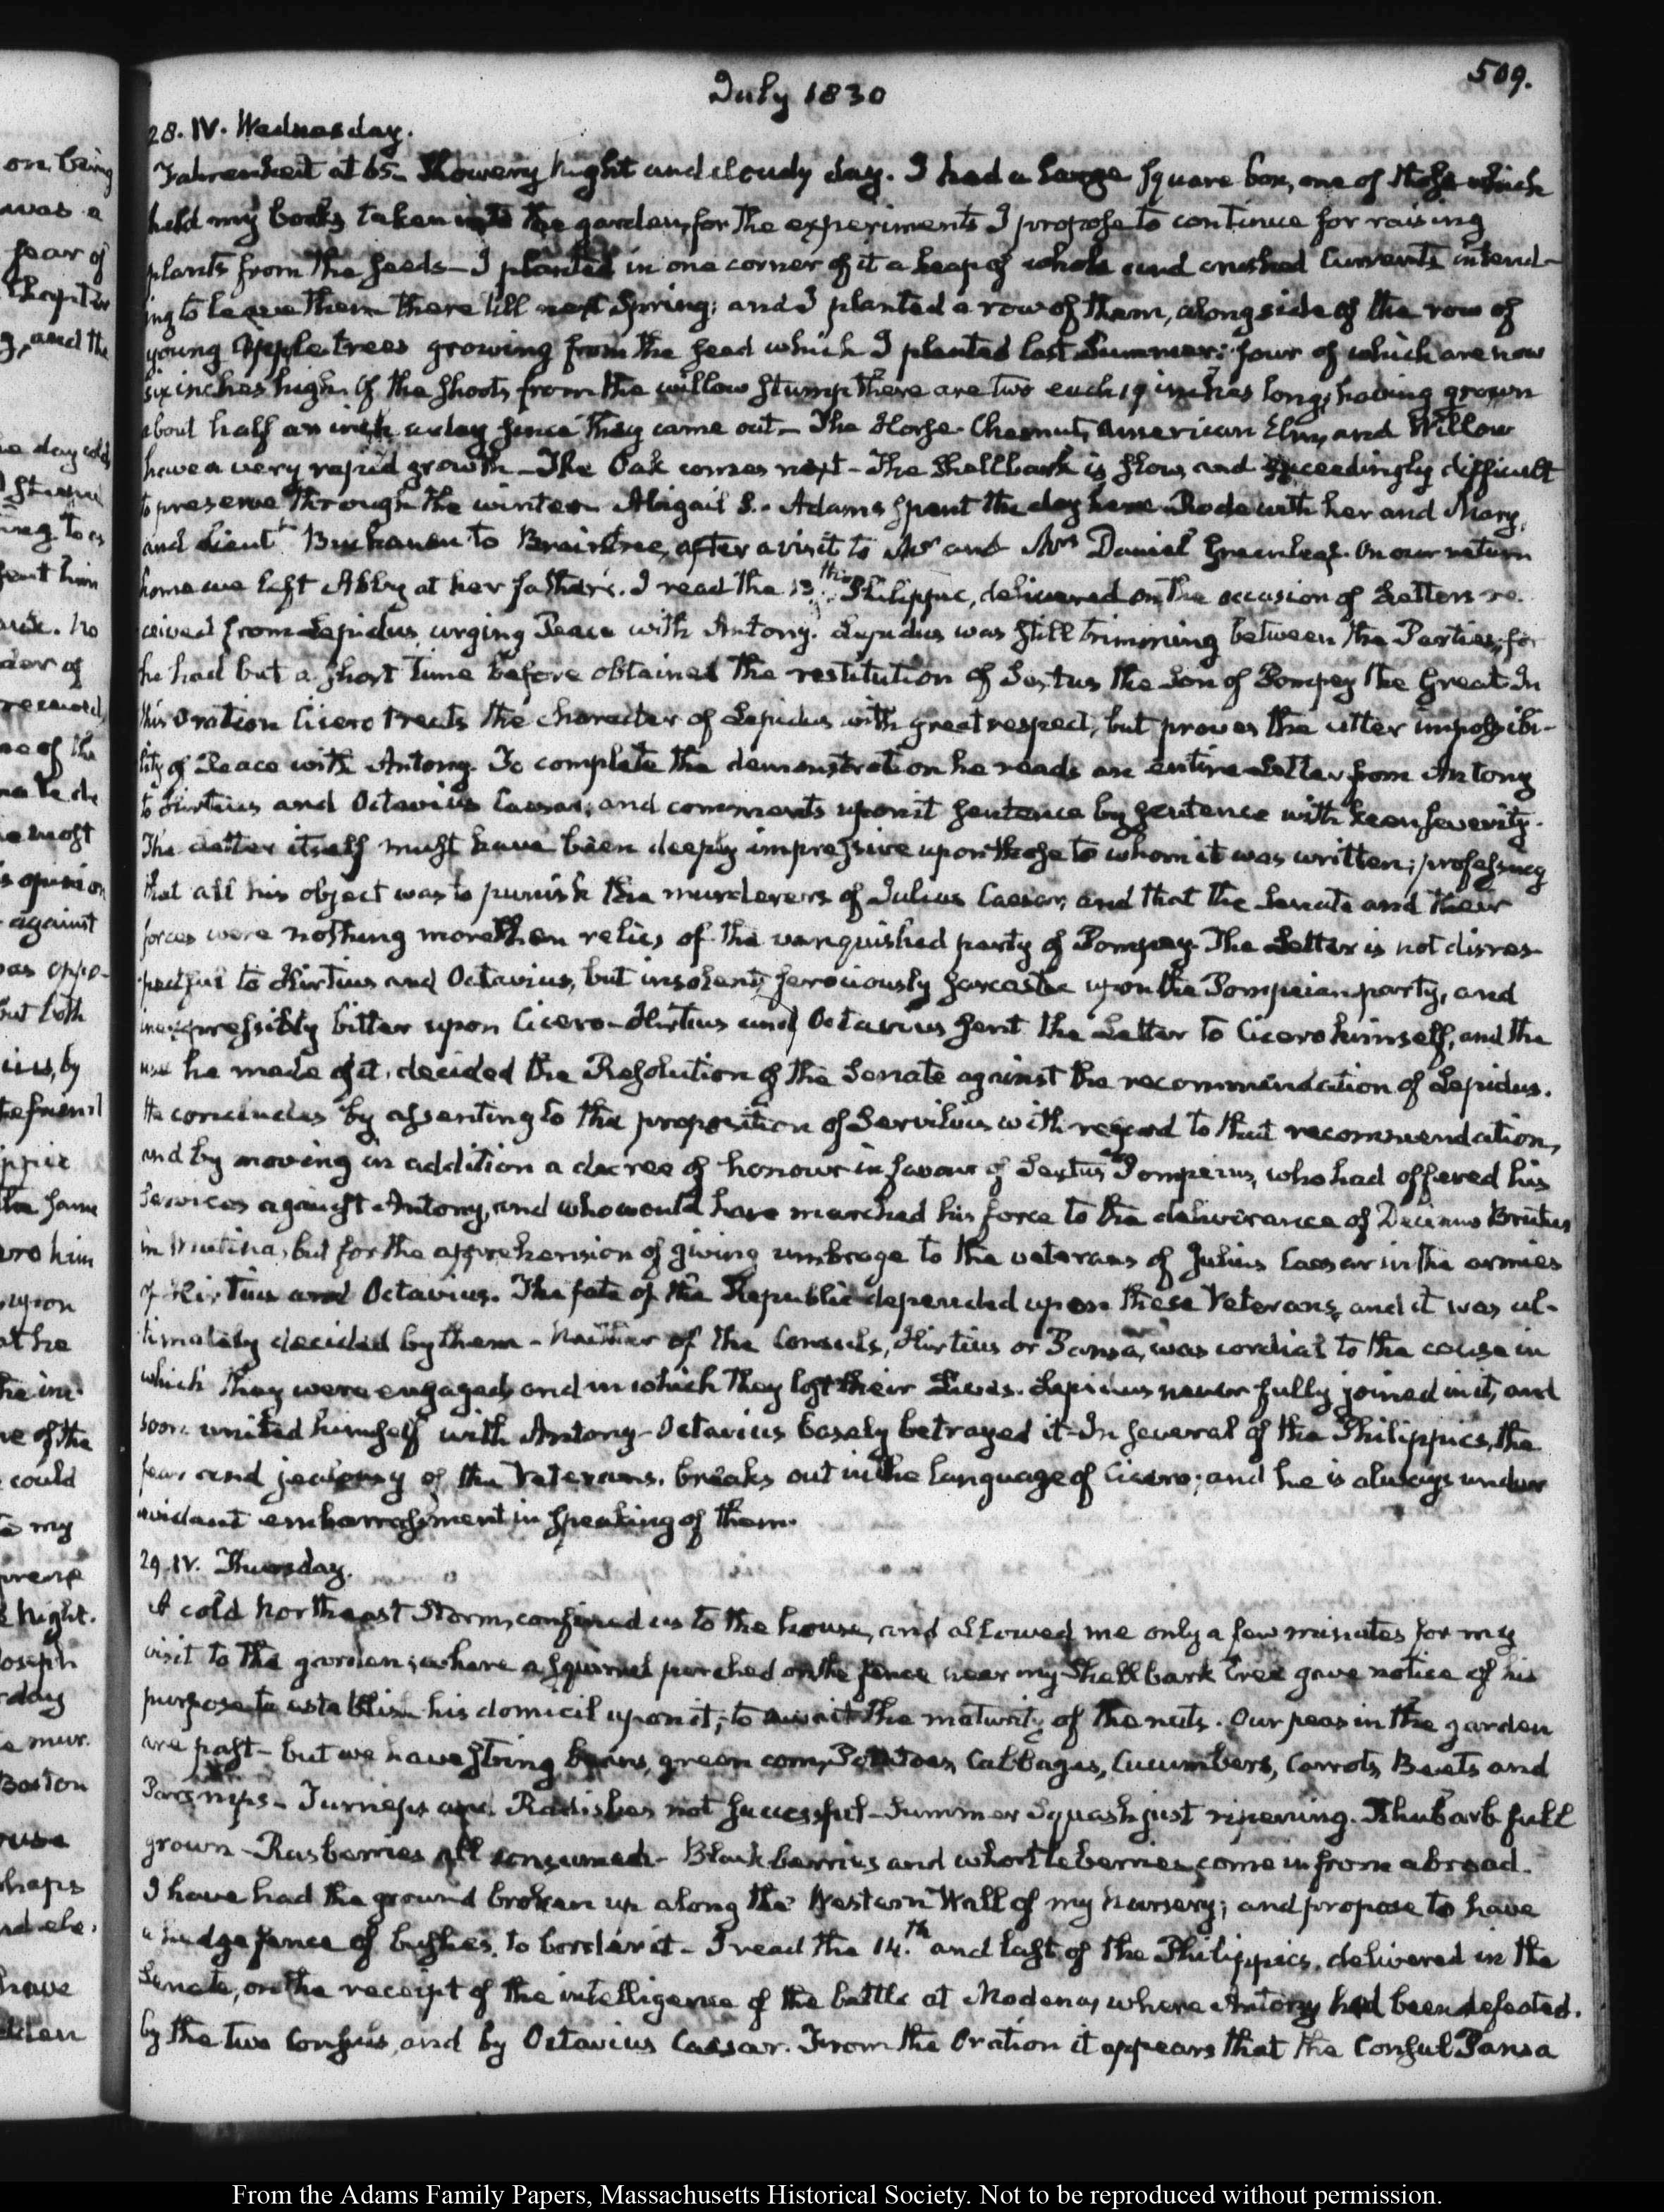 509.
July 1830
28. IV. Wednesday.
Fahrenheit at 65. Showery Night and cloudy day. I had a large square box, one of those which
held my books taken into the garden, for the experiments I propose to continue for raising
plants from the seeds — I planted in one corner of it a heap of whole and crushed Currants intend-
ing to leave them there till next Spring; and I planted a row of them, alongside of the row of
young Appletrees growing from the seed which I planted last Summer: four of which are now
six inches high. Of the shoots from the willow stump there are two each 19 inches long, having grown
about half an inch a day since they came out — The Horse-Chesnut, American Elm, and Willow
have a very rapid growth — The Oak comes next — The Shellbark is slow, and exceedingly difficult
to preserve through the winter. Abigail S. Adams spent the day here. Rode with her and Mary,
and Lieut.t Buchanan to Braintree, after a visit to Mr and Mrs Daniel Greenleaf. On our return
home we left Abby at her father's. I read the 13.th Philippic, delivered on the occasion of Letters re-
ceived from Lepidus, urging Peace with Antony. Lepidus was still trimming between the Parties, for
he had but a short time before obtained the restitution of Sextus the Son of Pompey the Great. In
this Oration Cicero treats the character of Lepidus with great respect, but proves the utter impossibi-
lity of Peace with Antony. To complete the demonstration he reads an entire Letter from Antony
to Hirtius and Octavius Caesar; and comments upon it sentence by sentence with keen severity.
The Letter itself must have been deeply impressive upon those to whom it was written; professing
that all his object was to punish the murderers of Julius Caesar, and that the Senate and their
forces were nothing more than relics of the vanquished party of Pompey. The Letter is not disres-
pectful to Hirtius and Octavius, but insolent, ferociously sarcastic upon the Pompeian party, and
inexpressibly bitter upon Cicero — Hirtius and Octavius sent the Letter to Cicero himself, and the
use he made of it, decided the Resolution of the Senate against the recommendation of Lepidus.
He concludes by assenting to the proposition of Servilius with regard to that recommendation,
and by moving in addition a decree of honour in favour of Sextus Pompeius, who had offered his
Services against Antony, and who would have marched his force to the deliverance of Decimus Brutus
in Mutina, but for the apprehension of giving umbrage to the veterans of Julius Caesar in the armies
of Hirtius and Octavius. The fate of the Republic depended upon these Veterans, and it was ul-
timately decided by them — Neither of the Consuls, Hirtius or Pansa, was cordial to the cause in
which they were engaged, and in which they lost their Lives. Lepidus never fully joined in it, and
soon united himself with Antony — Octavius basely betrayed it — In several of the Philippics, the
fear and jealousy of the Veterans, breaks out in the language of Cicero; and he is always under
evident embarrassment in speaking of them.
29. IV. Thursday.
A cold Northeast Storm, confined us to the house, and allowed me only a few minutes for my
visit to the garden; where a squirrel perched on the fence near my Shellbark tree gave notice of his
purpose to establish his domicil upon it, to await the maturity of the nuts. Our peas in the garden
are past — but we have string beans, green corn, Potatoes, Cabbages, Cucumbers, Carrots, Beets and
Parsnips — Turneps and Radishes not successful — Summer Squash just ripening. Rhubarb full
grown — Rasberries all consumed — Blackberries and whortleberries come in from abroad.
I have had the ground broken up along the Western Wall of my Nursery; and propose to have
a hedge fence of bushes, to border it — I read the 14.th and last of the Philippics, delivered in the
Senate, on the receipt of the intelligence of the battle at Modena, where Antony had been defeated.
by the two Consuls, and by Octavius Caesar. From the Oration it appears that the Consul Pansa
From the Adams Family Papers, Massachusetts Historical Society. Not to be reproduced without permission.